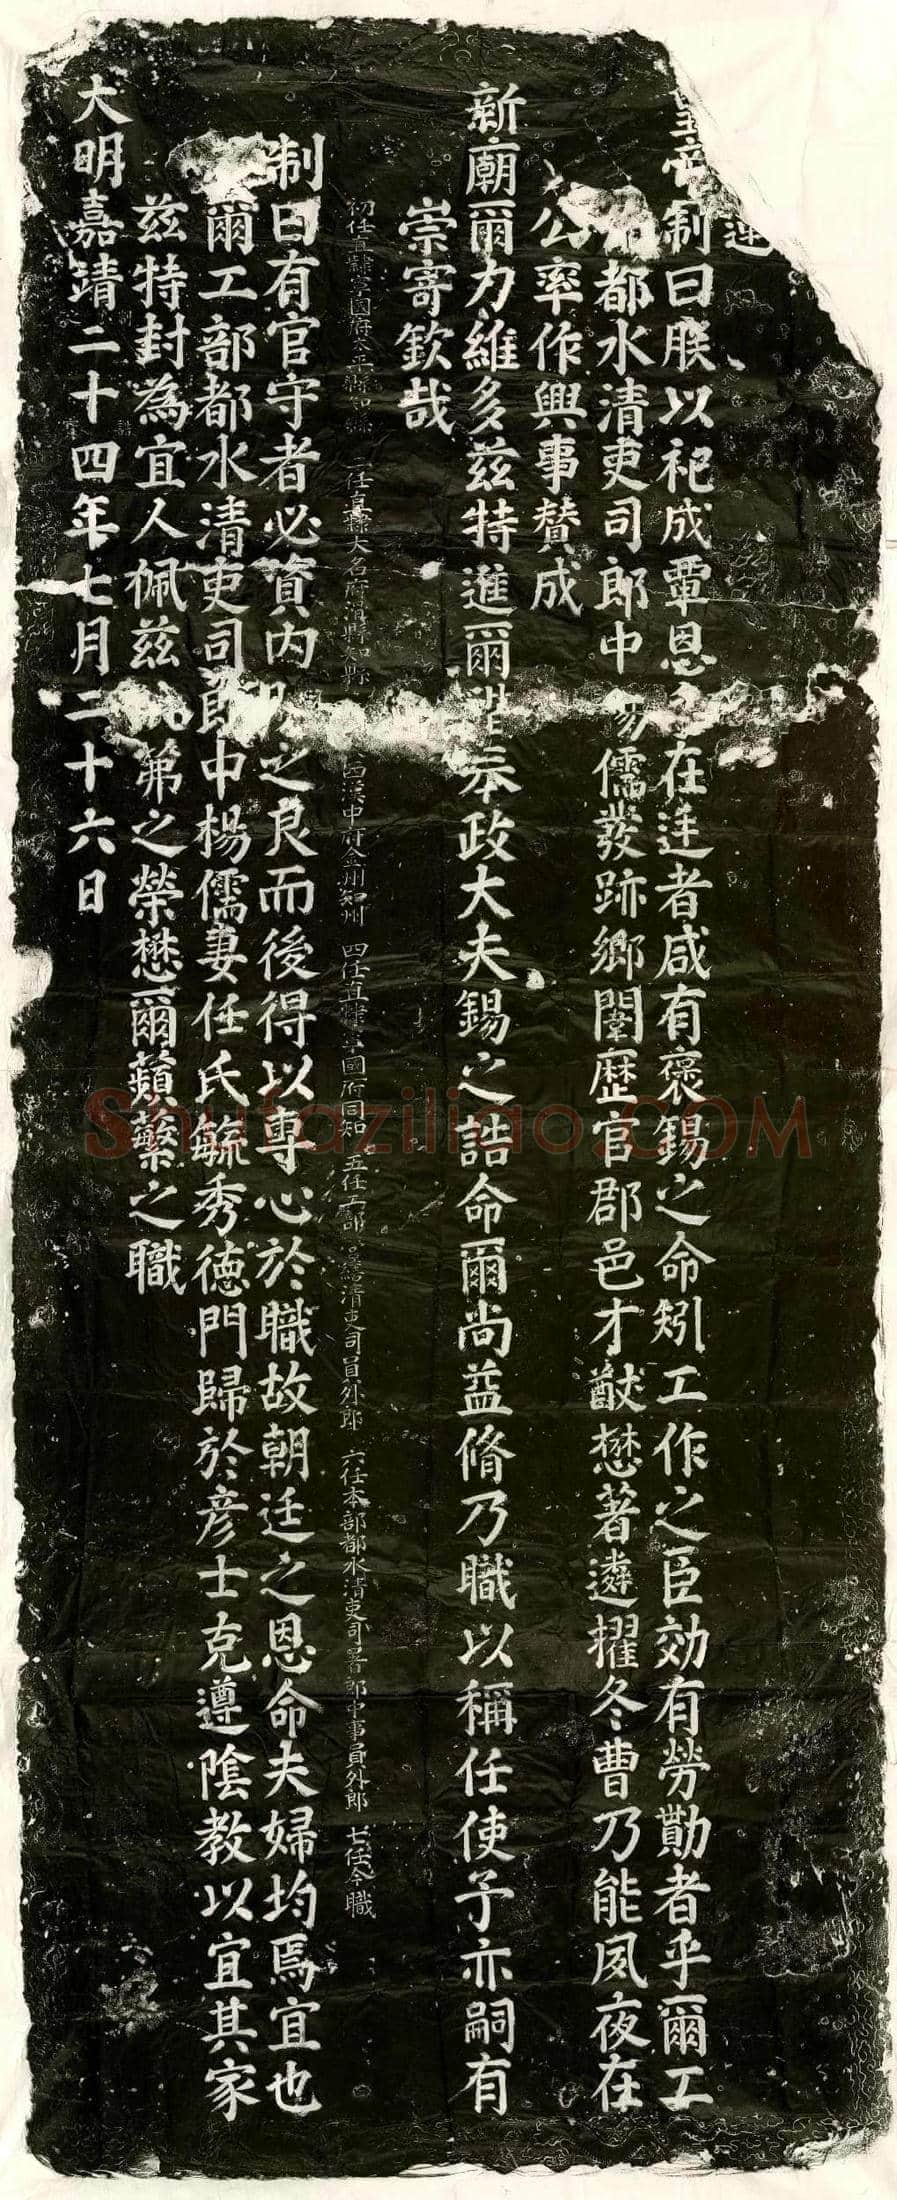 運
皇帝制曰朕以祀成覃恩在廷者咸有褒錫之命矧工作之臣効有勞勩者乎爾工
都水清吏司郎中楊儒發跡鄉闈歷官郡邑才猷懋著遴擢冬曹乃能夙夜在
公率作興事賛成
新廟爾力維多茲特進爾階奉政大夫錫之誥命爾尚益脩乃職以稱任使予亦嗣有
崇寄欽哉
初任直隸寧國府太平縣知縣 二任直隸大名府滑縣知縣 西漢中府金州知州 四任直隸寧國府同知 五任工部清吏司員外郎 六任本部都水清吏司署郎中事員外郎 七任今職
制曰有官守者必資內之良而後得以專心於職故朝廷之恩命夫婦均焉宜也
爾工部都水清吏司郎中楊儒妻任氏毓秀德門歸於彥士克遵陰教以宜其家
茲特封為宜人佩茲茀之榮懋爾蘋蘩之職
大明嘉靖二十四年七月二十六日
Shufaziliao.COM